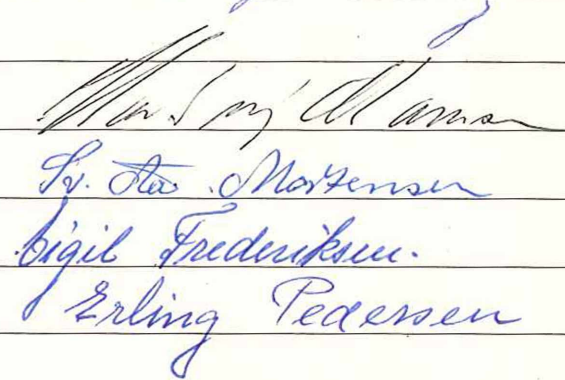 Hansen
Sv. Aa. Mortensen
Eigil Frederiksen.
Erling Pedersen